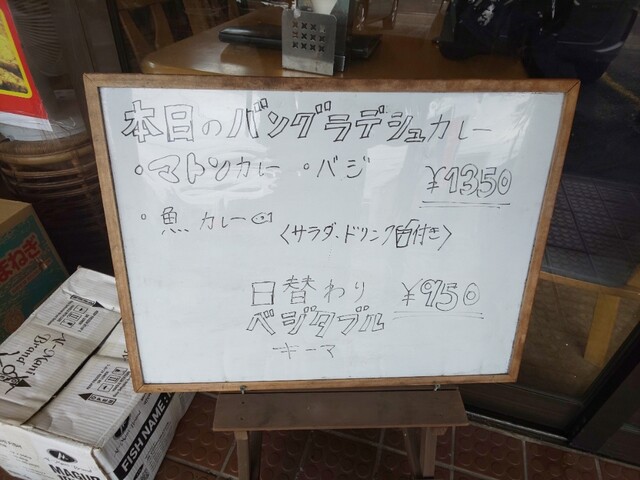 本日のバングラデシュカレー
・マトンカレー ・バジ ¥1350
・魚カレー
〈サラダ、ドリンク付き〉
日替わり ¥950
ベジタブル
キーマ
まねぎ
Brand
FISH NAME:
MAGUR